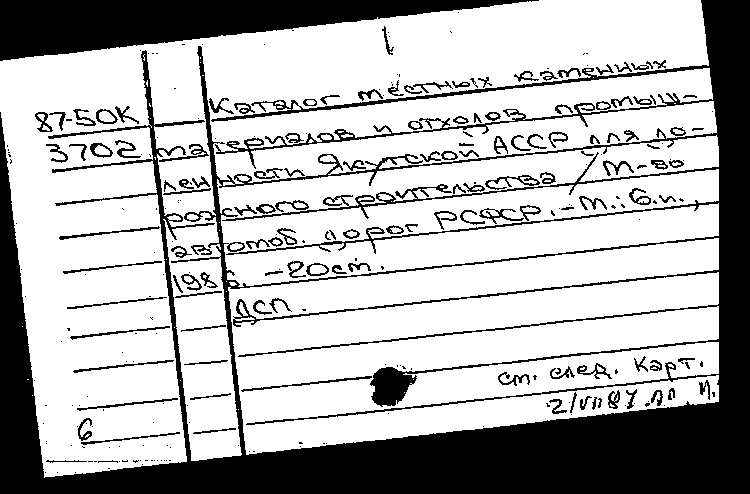 87-50К Каталог местных каменных
3702 материалов и отходов промыш-
ленности Якутской АССР для до-
рожного строительства / М-во
автомоб. дорог РСФСР. - М.: Б.и.,
1986. - 20 см.
ДСП.
См. след. карт.
6